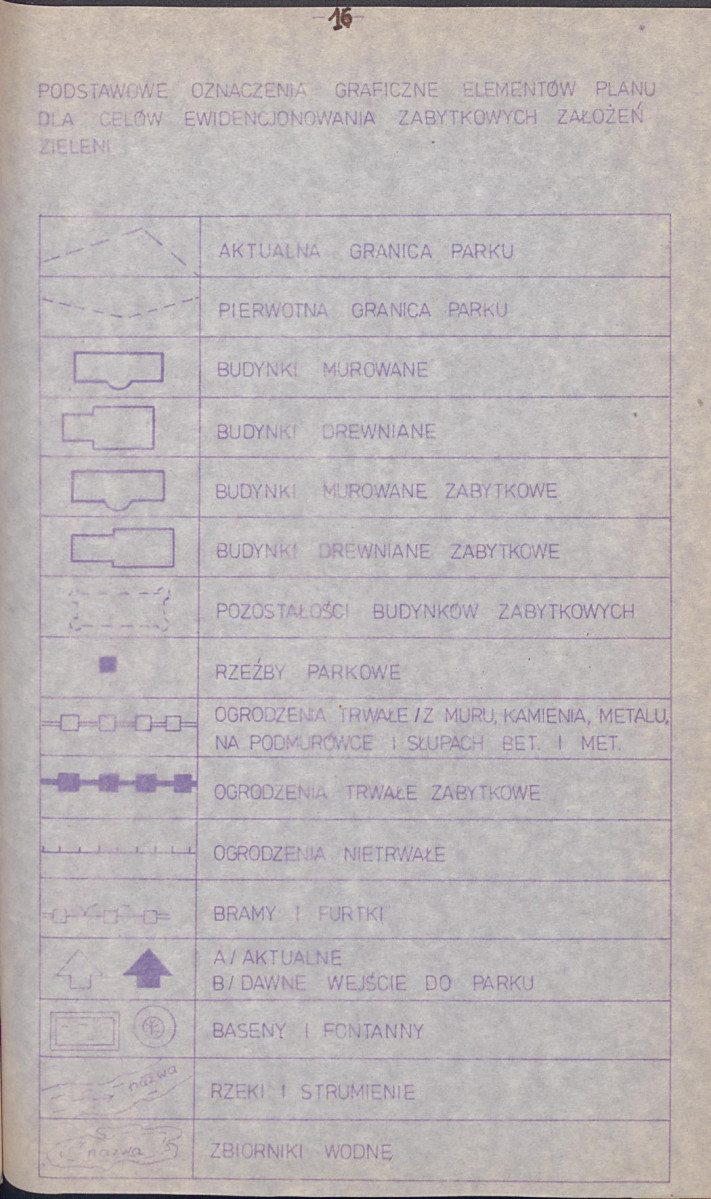 16
PODSTAWOWE OZNACZENIA GRAFICZNE ELEMENTÓW PLANU
DLA CELÓW EWIDENCJONOWANIA ZABYTKOWYCH ZAŁOŻEŃ
ZIELENI
AKTUALNA GRANICA PARKU
PIERWOTNA GRANICA PARKU
BUDYNKI MUROWANE
BUDYNKI DREWNIANE
BUDYNKI MUROWANE ZABYTKOWE
BUDYNKI DREWNIANE ZABYTKOWE
POZOSTAŁOŚCI BUDYNKÓW ZABYTKOWYCH
RZEŹBY PARKOWE
OGRODZENIA TRWAŁE /Z MURU, KAMIENIA, METALU,
NA PODMURÓWCE I SŁUPACH BET. I MET.
OGRODZENIA TRWAŁE ZABYTKOWE
OGRODZENIA NIETRWAŁE
BRAMY I FURTKI
A/ AKTUALNE
B/ DAWNE WEJŚCIE DO PARKU
BASENY I FONTANNY
nazwa
RZEKI I STRUMIENIE
nazwa
ZBIORNIKI WODNE